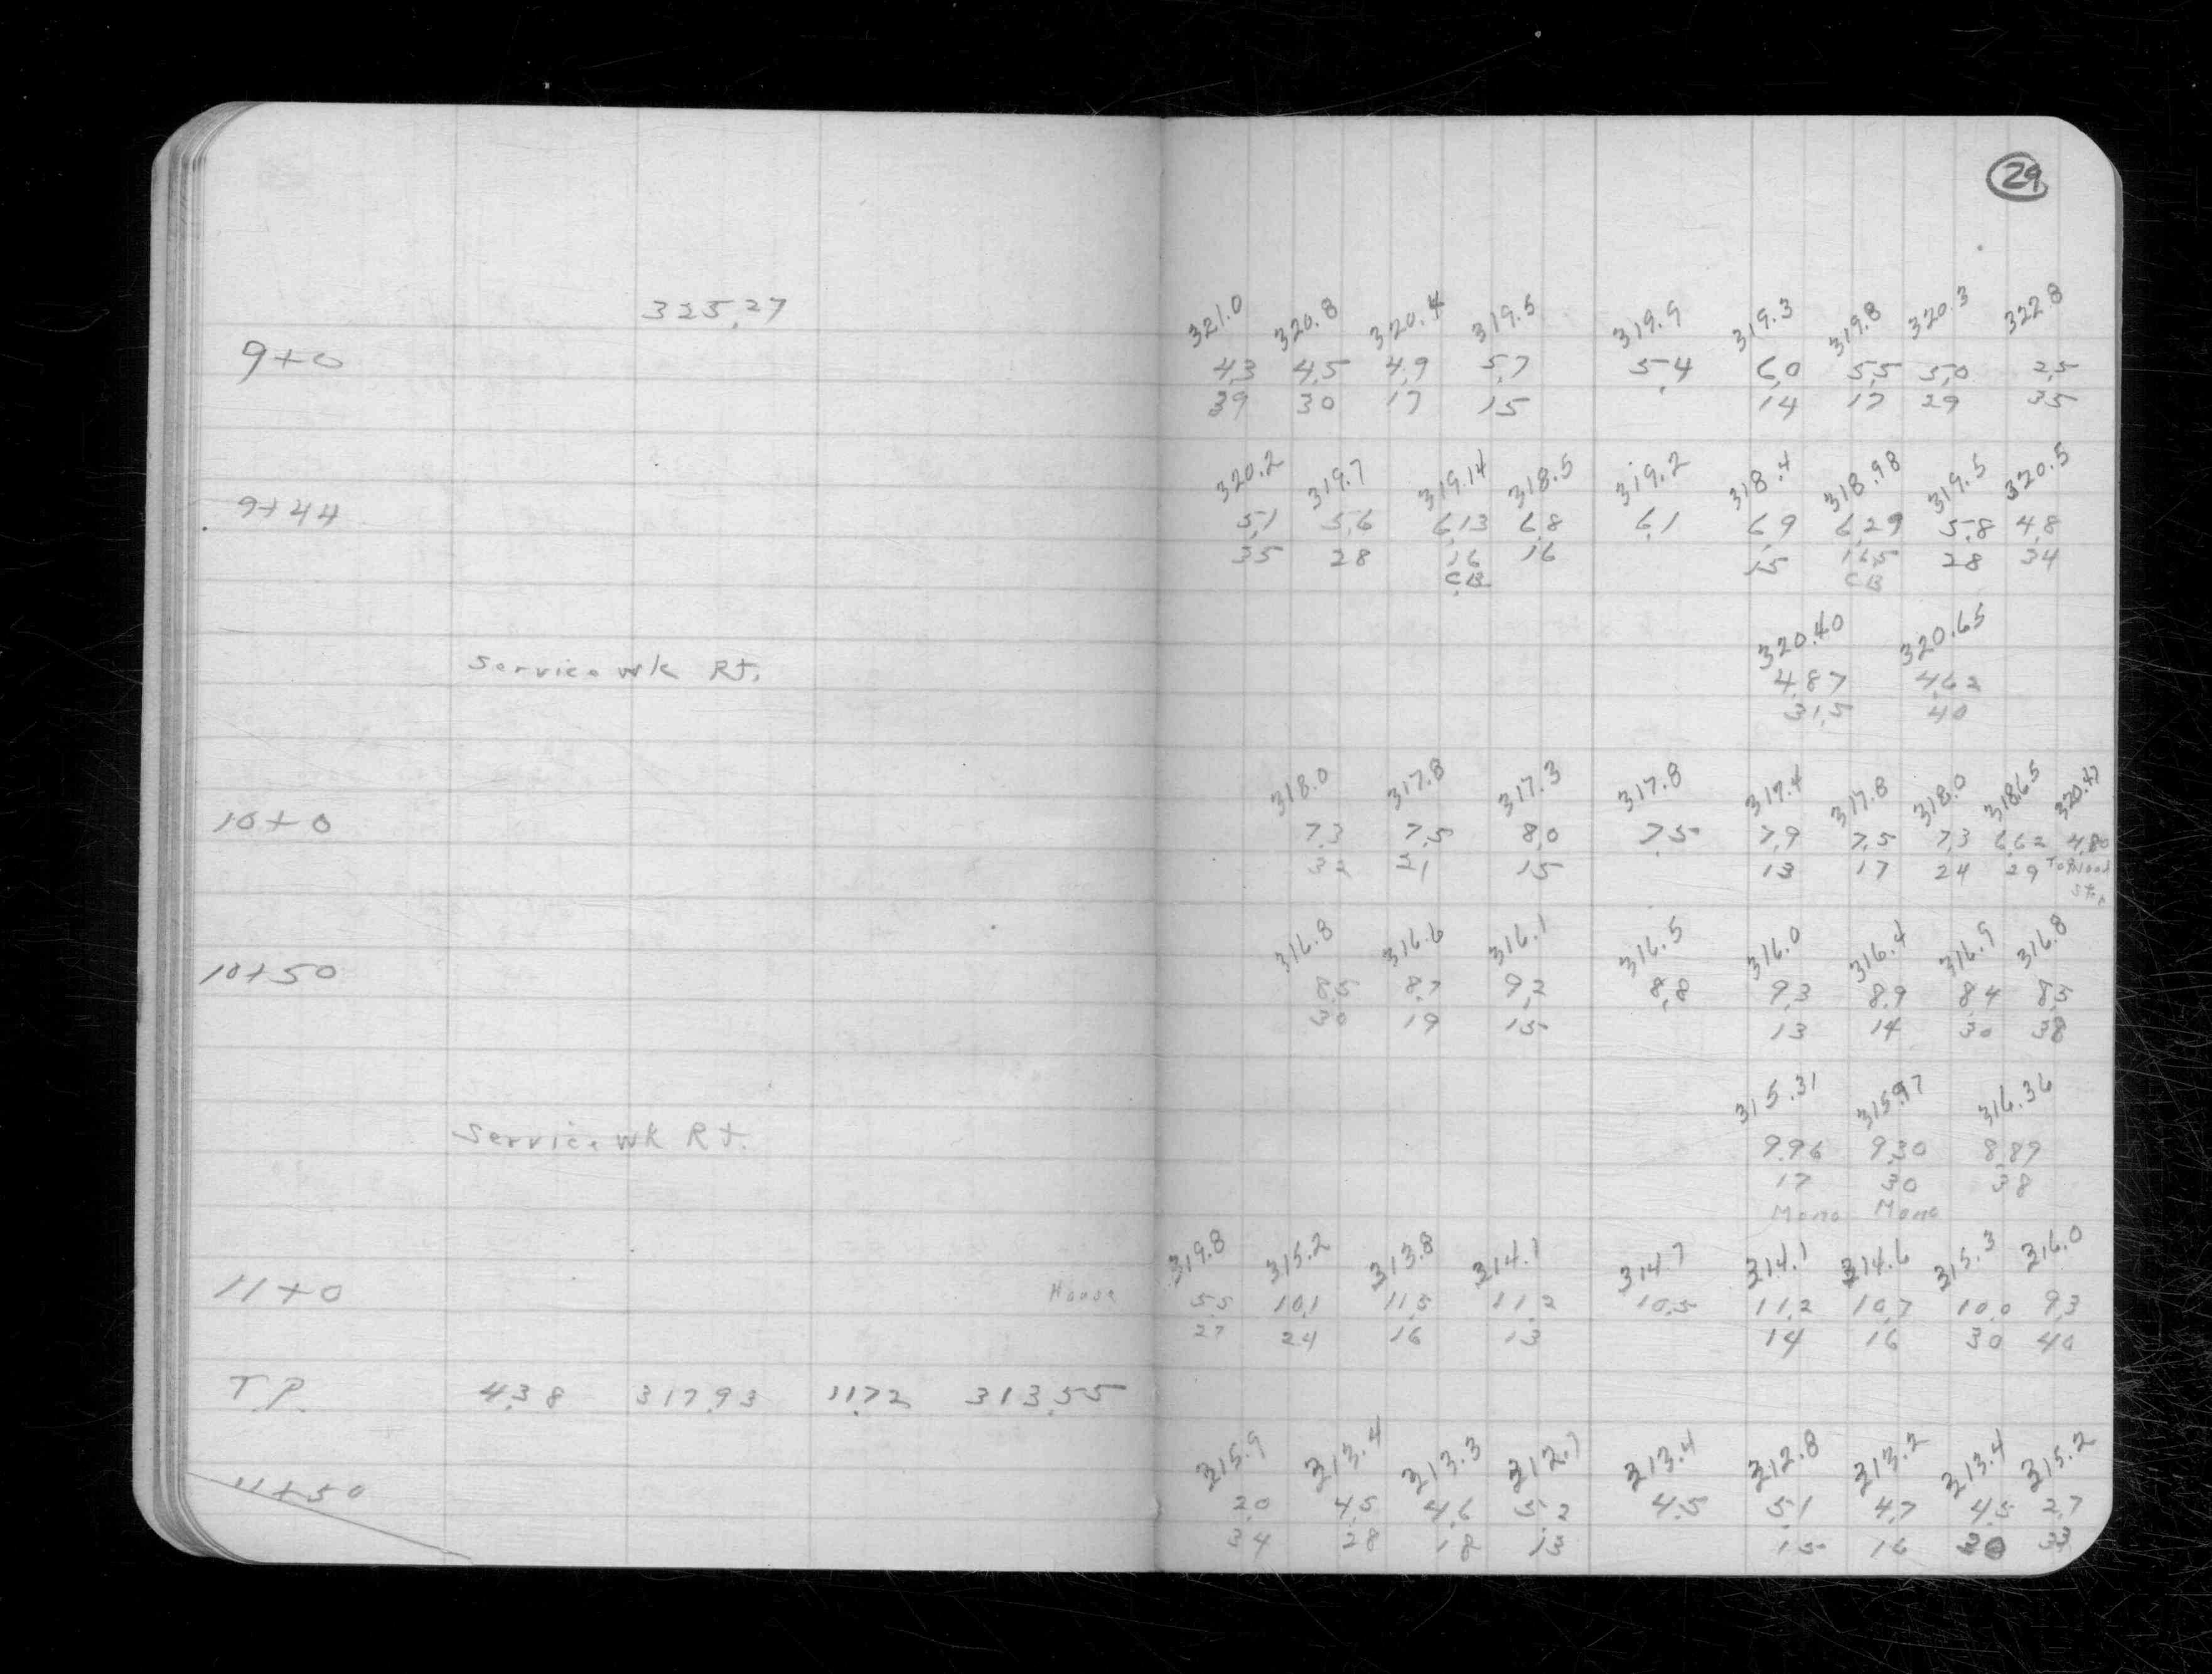 29
325.27
321.0 320.8 320.4 319.5 319.9 319.3 319.8 320.3 322.8
9+0 4.3 4.5 4.9 5.7 5.4 6.0 5.5 5.0 2.5
39 30 17 15 14 17 29 35
320.2 319.7 319.14 318.5 319.2 318.4 318.98 319.5 320.5
9+44 5.1 5.6 6.13 6.8 6.1 6.9 6.29 5.8 4.8
35 28 16 16 15 16.5 28 34
CB CB
320.40 320.65
Service wk Rt. 4.87 4.62
31.5 40
318.0 317.8 317.3 317.8 317.4 317.8 318.0 318.65 320.47
10+0 7.3 7.5 8.0 7.5 7.9 7.5 7.3 6.62 4.80
32 21 15 13 17 24 29 Top Wood
316.8 316.6 316.1 316.5 316.0 316.4 316.9 316.8
10+50 8.5 8.7 9.2 8.8 9.3 8.9 8.4 8.5
30 19 15 13 14 30 38
315.31 315.97 316.36
Service wk Rt. 9.96 9.30 8.89
17 30 38
Mono Mono
319.8 315.2 313.8 314.1 314.7 314.1 314.6 315.3 316.0
11+0 House 5.5 10.1 11.5 11.2 10.5 11.2 10.7 10.0 9.3
27 24 16 13 14 16 30 40
T.P. 4.38 317.93 11.72 313.55
315.9 313.4 313.3 312.7 313.4 312.8 313.2 313.4 315.2
11+50 2.0 4.5 4.6 5.2 4.5 5.1 4.7 4.5 2.7
34 28 18 13 15 16 30 33